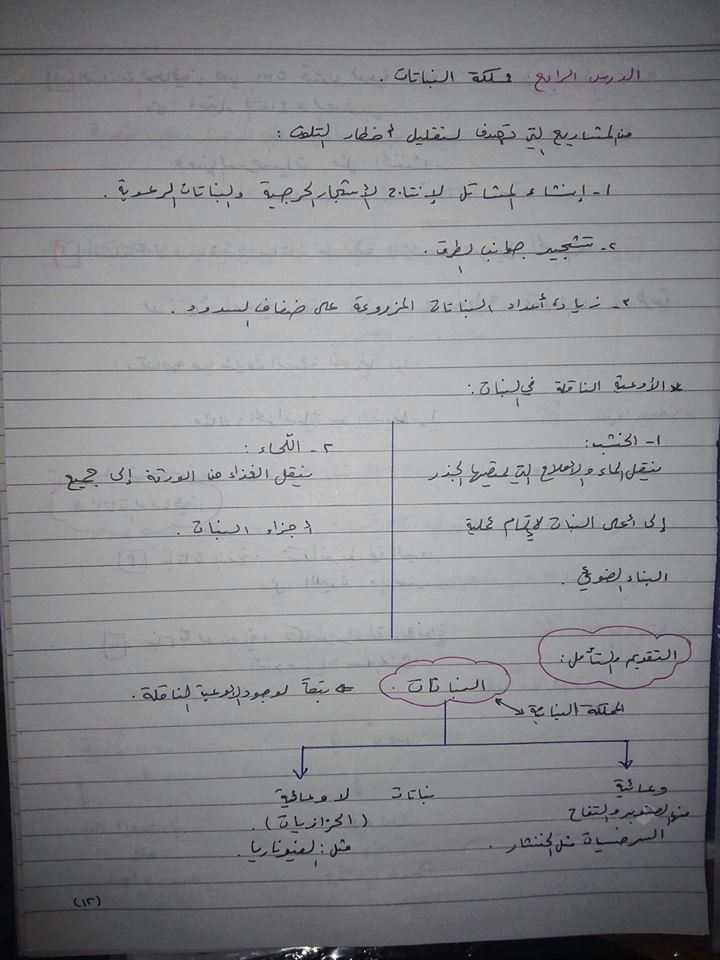 الدرس الرابع: مملكة النباتات.
من المشاريع التي تهدف لتقليل أخطار التلوث:
١- إنشاء المشاتل لإنتاج الأشجار الحرجية والنباتات الرعوية.
٢- تشجير جوانب الطرق.
٣- زيادة أعداد النباتات المزروعة على ضفاف السدود.
* الأوعية الناقلة في النبات:
١- الخشب:
ينقل الماء والأملاح التي يمتصها الجذر
إلى أعلى النبات لإتمام عملية
البناء الضوئي.
٢- اللّحاء:
ينقل الغذاء من الورقة إلى جميع
أجزاء النبات.
التقويم والتأمل:
المملكة النباتية
النباتات. ⇐ تبعاً لوجود الأوعية الناقلة.
وعائية
منها الصنوبر والتفاح
السرخسيات مثل الخنشار.
نباتات لا وعائية
(الحزازيات).
مثل: الفيوناريا.
(١٢)